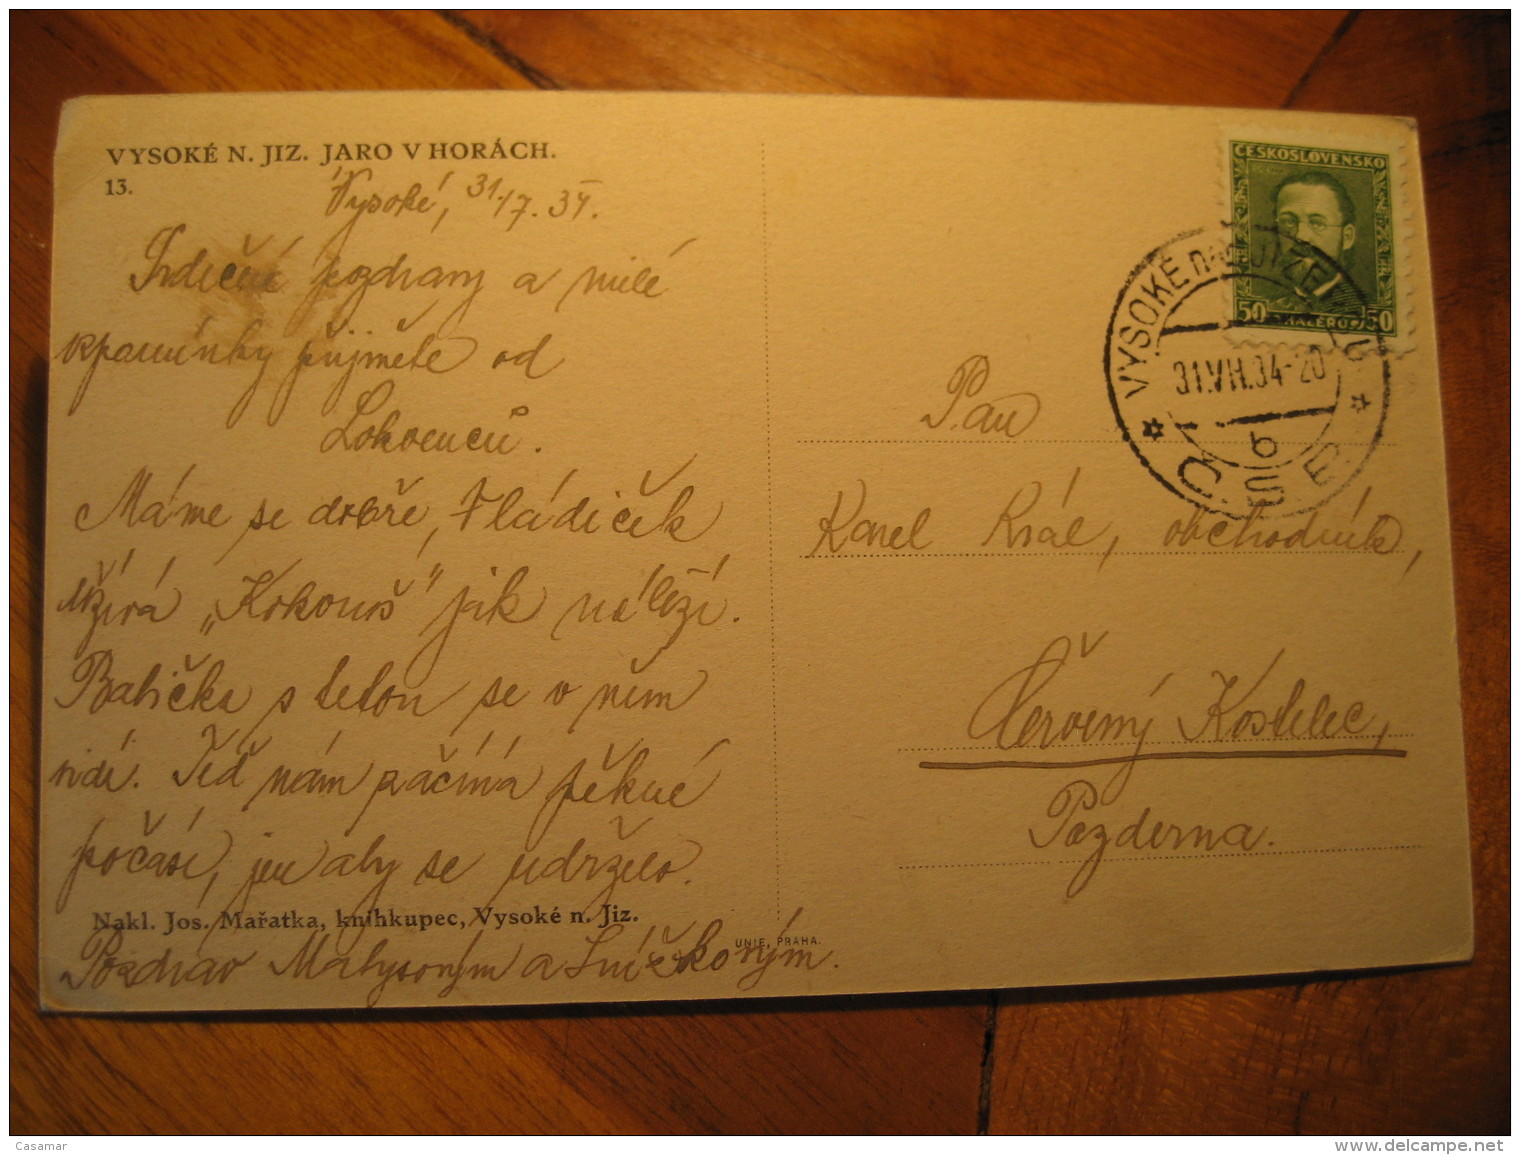 VYSOKÉ N. JIZ. JARO V HORÁCH.
13.
Vysoké, 31./7. 34.
Srdečné pozdravy a milé
vzpomínky přijměte od
Lokvenců.
Máme se dobře, Vláďiček
užívá „Krkonoš" jak náleží.
Babička s tetou se v něm
vidí. Teď nám začíná pěkné
počasí, jen aby se udrželo.
Nakl. Jos. Mařatka, knihkupec, Vysoké n. Jiz.
Pozdrav Matysovým a Snížkovým.
UNIE, PRAHA.
ČESKOSLOVENSKO
50 50
VYSOKÉ nad JIZEROU
31.VII.34-20
b
Č.S.R.
Pan
Karel Král, obchodník,
Červený Kostelec,
Pazderna.
Casamar
www.delcampe.net